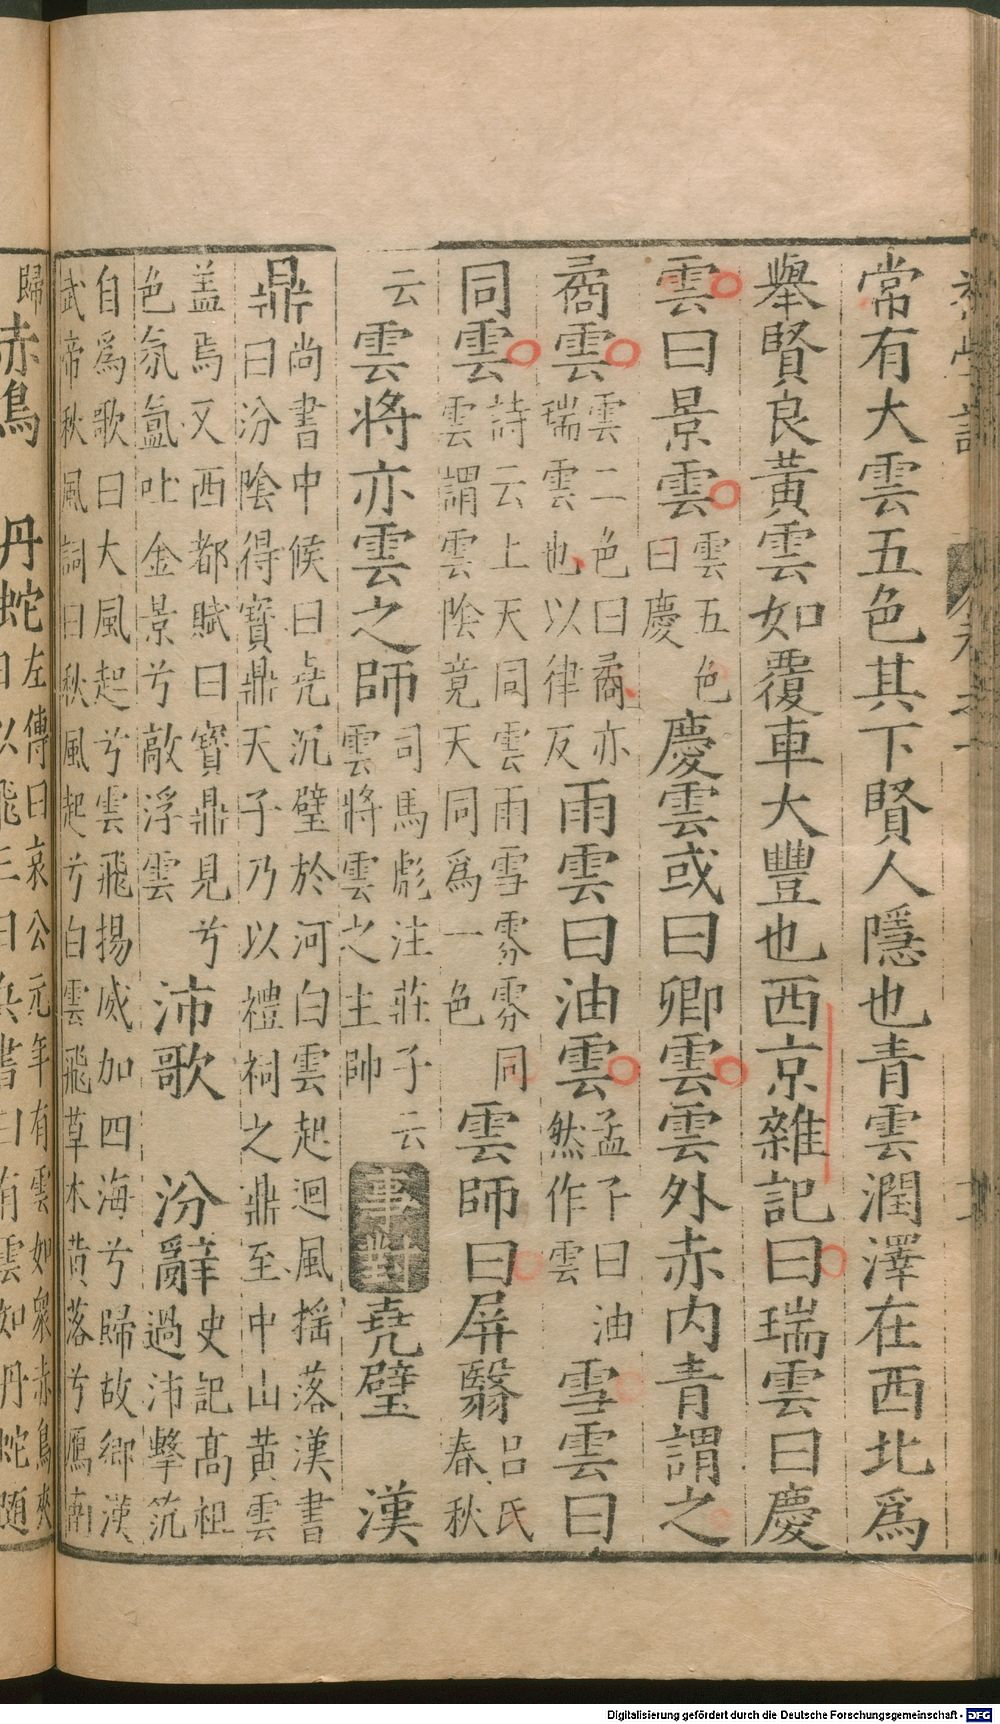 常有大雲五色其下賢人隱也青雲潤澤在西北爲
舉賢良黃雲如覆車大豐也西京雜記曰瑞雲曰慶
雲曰景雲雲五色曰慶慶雲或曰卿雲雲外赤内青謂之
矞雲雲二色曰矞亦瑞雲也以律反雨雲曰油雲孟子曰油然作雲雪雲曰
同雲詩云上天同雲雨雪雰雰同雲謂雲陰竟天同爲一色雲師曰屏翳吕氏春秋
云雲將亦雲之師司馬彪注莊子云雲將雲之主帥事對堯璧 漢
鼎尚書中候曰堯沉璧於河白雲起迴風揺落漢書曰汾陰得寳鼎天子乃以禮祠之鼎至中山黄雲
盖焉又西都賦曰寳鼎見兮色氛氲吐金景兮敵浮雲沛歌 汾辭史記髙祖過沛擊筑
自爲歌曰大風起兮雲飛揚威加四海兮歸故鄉漢武帝秋風詞曰秋風起兮白雲飛草木黄落兮鴈南
歸赤鳥 丹蛇左傳曰哀公元年有雲如衆赤鳥夾
Digitalisierung gefördert durch die Deutsche Forschungsgemeinschaft - DFG